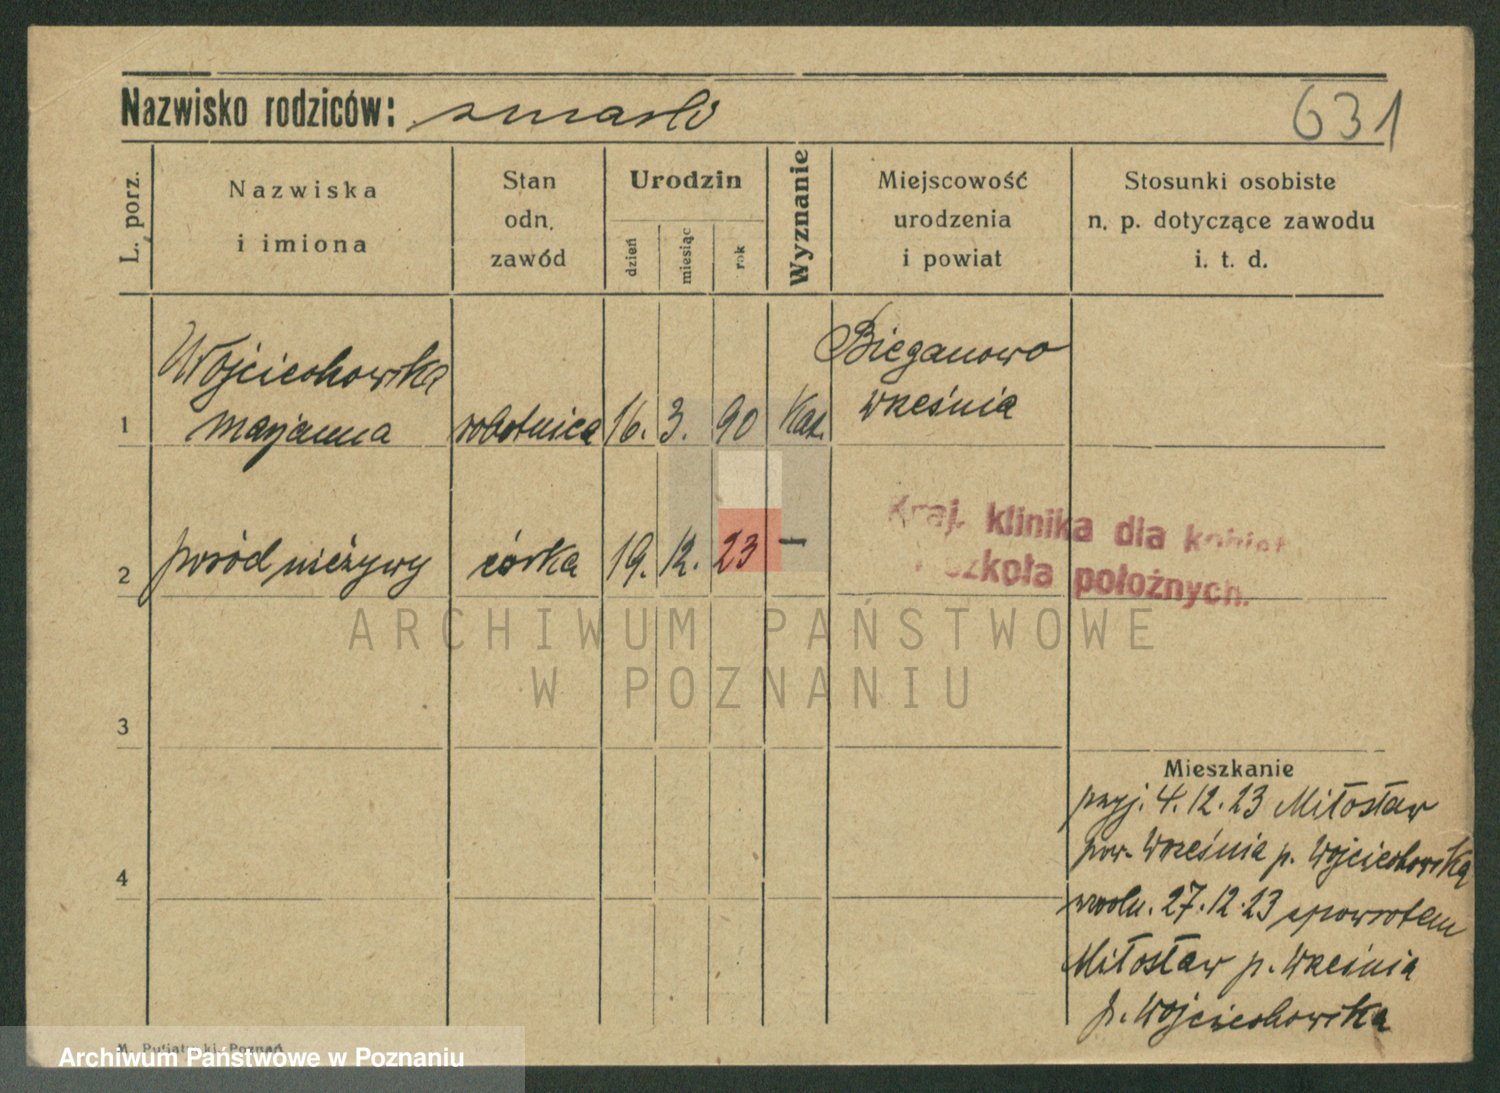 Nazwisko rodziców: zmarli
631
L. porz.
Nazwiska
i imiona
Stan
odn.
zawód
Urodzin
dzień
miesiąc
rok
Wyznanie
Miejscowość
urodzenia
i powiat
Stosunki osobiste
n. p. dotyczące zawodu
i. t. d.
Wojciechowska
1 Maryanna robotnica 16. 3. 90 Kat.
Bieganowo
Września
2 poród nieżywy córka 19. 12. 23 —
Kraj. klinika dla kobiet
szkoła położnych.
ARCHIWUM PAŃSTWOWE
W POZNANIU
3
4
Mieszkanie
przyj. 4.12.23 Miłosław
pow. Września p. Wojciechowską
zwoln. 27.12.23 zpowrotem
Miłosław p. Września
p. Wojciechowska
Archiwum Państwowe w Poznaniu